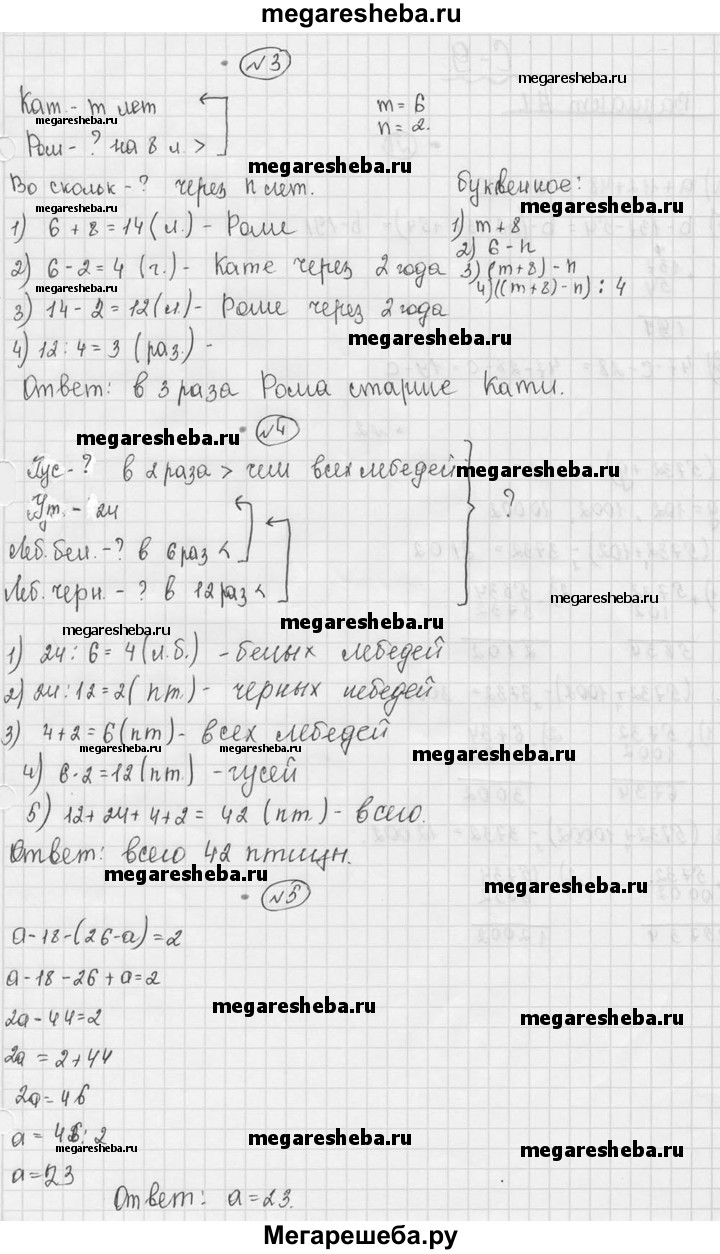 megaresheba.ru
№3
megaresheba.ru
Кат. - m лет
m = 6
megaresheba.ru
Ром - ? на 8 л. >
n = 2.
megaresheba.ru
Во скольк - ? через n лет.
буквенное:
megaresheba.ru
megaresheba.ru
1) 6 + 8 = 14 (л.) - Роме
1) m + 8
2) 6 - 2 = 4 (г.) - Кате через 2 года
2) 6 - n
3) (m + 8) - n
3) 14 - 2 = 12 (л.) - Роме через 2 года
4) ((m + 8) - n) : 4
megaresheba.ru
4) 12 : 4 = 3 (раз.) -
Ответ: в 3 раза Рома старше Кати.
megaresheba.ru
№4
Гус - ? в 2 раза > чем всех лебедей
megaresheba.ru
Ут. - 24
?
Леб. бел. - ? в 6 раз <
Леб. черн. - ? в 12 раз <
megaresheba.ru
megaresheba.ru
megaresheba.ru
1) 24 : 6 = 4 (л.б.) - белых лебедей
2) 24 : 12 = 2 (пт.) - черных лебедей
3) 4 + 2 = 6 (пт) - всех лебедей
megaresheba.ru
megaresheba.ru
megaresheba.ru
4) 6 · 2 = 12 (пт.) - гусей
5) 12 + 24 + 4 + 2 = 42 (пт.) - всего.
Ответ: всего 42 птицы.
megaresheba.ru
megaresheba.ru
№5
a - 18 - (26 - a) = 2
a - 18 - 26 + a = 2
megaresheba.ru
2a - 44 = 2
megaresheba.ru
2a = 2 + 44
2a = 46
a = 46 : 2
megaresheba.ru
megaresheba.ru
megaresheba.ru
a = 23
Ответ: a = 23.
Мегарешеба.ру